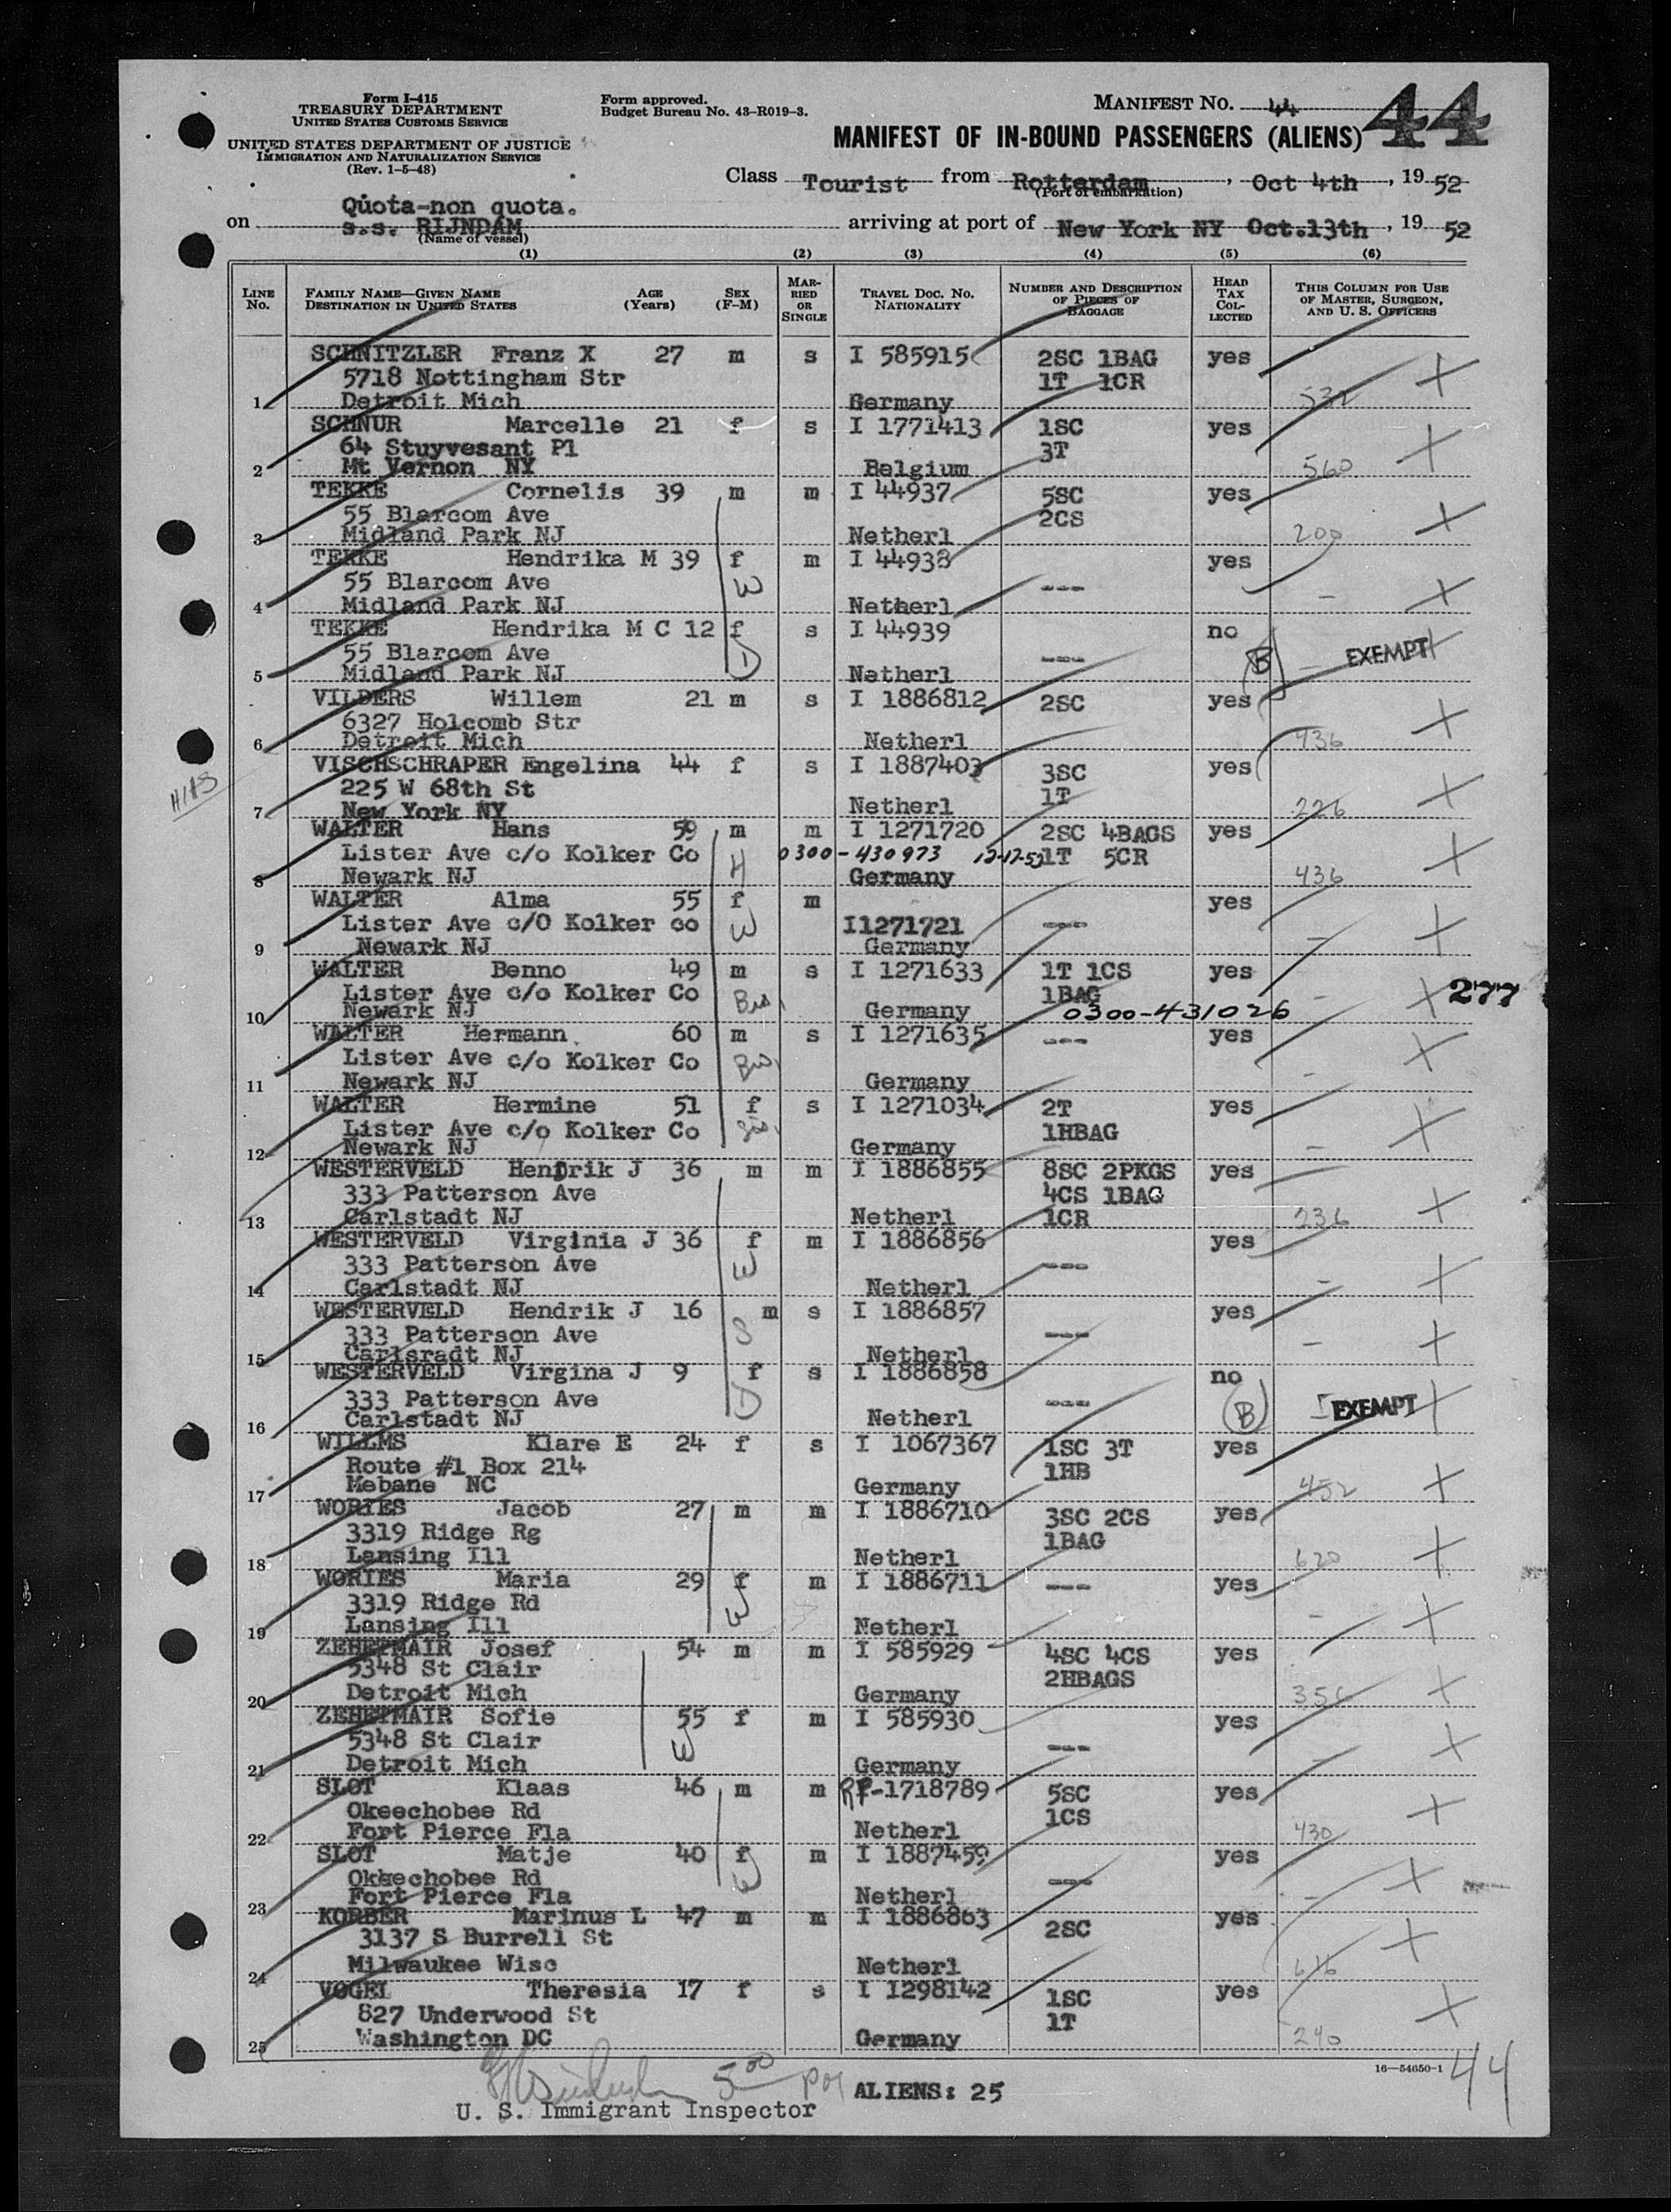 Form I-415
TREASURY DEPARTMENT
UNITED STATES CUSTOMS SERVICE
UNITED STATES DEPARTMENT OF JUSTICE
IMMIGRATION AND NATURALIZATION SERVICE
(Rev. 1-5-48)
Form approved.
Budget Bureau No. 43-R019-3.
MANIFEST NO. 44
44
MANIFEST OF IN-BOUND PASSENGERS (ALIENS)
Class Tourist from Rotterdam, Oct 4th, 1952
(Port of embarkation)
Quota-non quota.
on s.s. RIJNDAM arriving at port of New York NY Oct.13th, 1952
(Name of vessel)
(1) (2) (3) (4) (5) (6)
LINE NO. FAMILY NAME—GIVEN NAME DESTINATION IN UNITED STATES AGE (Years) SEX (F-M) MARRIED OR SINGLE TRAVEL DOC. NO. NATIONALITY NUMBER AND DESCRIPTION OF PIECES OF BAGGAGE HEAD TAX COLLECTED THIS COLUMN FOR USE OF MASTER, SURGEON, AND U. S. OFFICERS
SCHNITZLER Franz X 27 m s I 585915 2SC 1BAG yes
5718 Nottingham Str 1T 1CR
1 Detroit Mich Germany 532
SCHNUR Marcelle 21 f s I 1771413 1SC yes
64 Stuyvesant Pl 3T
2 Mt Vernon NY Belgium 560
TEKKE Cornelis 39 m m I 44937 5SC yes
55 Blarcom Ave 2CS
3 Midland Park NJ Netherl 200
TEKKE Hendrika M 39 f m I 44938 yes
55 Blarcom Ave W ---
4 Midland Park NJ Netherl -
TEKKE Hendrika M C 12 f s I 44939 no
55 Blarcom Ave D --- B - EXEMPT
5 Midland Park NJ Netherl
VILDERS Willem 21 m s I 1886812 2SC yes
6327 Holcomb Str
6 Detroit Mich Netherl 436
VISCHSCHRAPER Engelina 44 f s I 1887403 3SC yes
225 W 68th St 1T
HIAS
7 New York NY Netherl 226
WALTER Hans 59 m m I 1271720 2SC 4BAGS yes
Lister Ave c/o Kolker Co H 0300-430973 12-17-57 1T 5CR
8 Newark NJ Germany 436
WALTER Alma 55 f m yes
Lister Ave c/O Kolker co W I1271721 ---
9 Newark NJ Germany -
WALTER Benno 49 m s I 1271633 1T 1CS yes
Lister Ave c/o Kolker Co Bro. 1BAG - 277
10 Newark NJ Germany 0300-431026
WALTER Hermann 60 m s I 1271635 --- yes
Lister Ave c/o Kolker Co Bro.
11 Newark NJ Germany -
WALTER Hermine 51 f s I 1271034 2T yes
Lister Ave c/o Kolker Co Sis. 1HBAG
12 Newark NJ Germany -
WESTERVELD Hendrik J 36 m m I 1886855 8SC 2PKGS yes
333 Patterson Ave 4CS 1BAG
13 Carlstadt NJ Netherl 1CR 236
WESTERVELD Virginia J 36 f m I 1886856 yes
333 Patterson Ave W ---
14 Carlstadt NJ Netherl -
WESTERVELD Hendrik J 16 m s I 1886857 yes
333 Patterson Ave S ---
15 Carlsradt NJ Netherl -
WESTERVELD Virgina J 9 f s I 1886858 no
333 Patterson Ave D --- B EXEMPT
16 Carlstadt NJ Netherl
WILLMS Klare E 24 f s I 1067367 1SC 3T yes
Route #1 Box 214 1HB
17 Mebane NC Germany 452
WORIES Jacob 27 m m I 1886710 3SC 2CS yes
3319 Ridge Rg 1BAG
18 Lansing Ill Netherl 620
WORIES Maria 29 f m I 1886711 --- yes
3319 Ridge Rd W
19 Lansing Ill Netherl -
ZEHETMAIR Josef 54 m m I 585929 4SC 4CS yes
5348 St Clair 2HBAGS
20 Detroit Mich Germany
ZEHETMAIR Sofie 55 f m I 585930 yes
5348 St Clair W ---
21 Detroit Mich Germany -
SLOT Klaas 46 m m RP-1718789 5SC yes
Okeechobee Rd 1CS
22 Fort Pierce Fla Netherl 430
SLOT Matje 40 f m I 1887459 yes
Okkechobee Rd W ---
23 Fort Pierce Fla Netherl -
KORBER Marinus L 47 m m I 1886863 2SC yes
3137 S Burrell St
24 Milwaukee Wisc Netherl 616
VOGEL Theresia 17 f s I 1298142 1SC yes
827 Underwood St 1T
25 Washington DC Germany 240
16—54650-1
44
5 00 ALIENS: 25
U. S. Immigrant Inspector